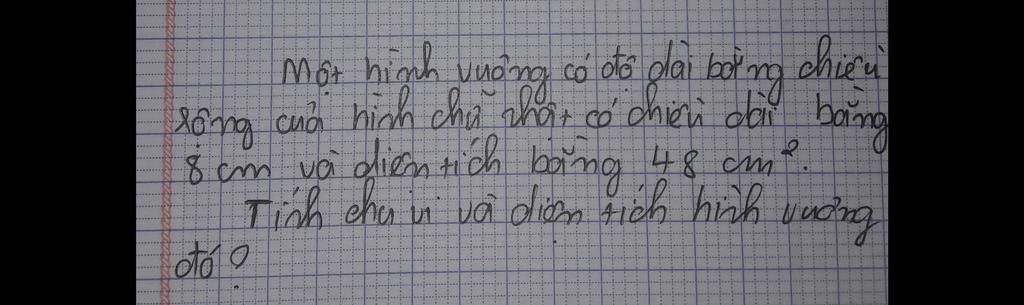 Một hình vuông có độ dài bằng chiều
rộng của hình chữ nhật có chiều dài bằng
8 cm và diện tích bằng 48 cm².
Tính chu vi và diện tích hình vuông
đó?